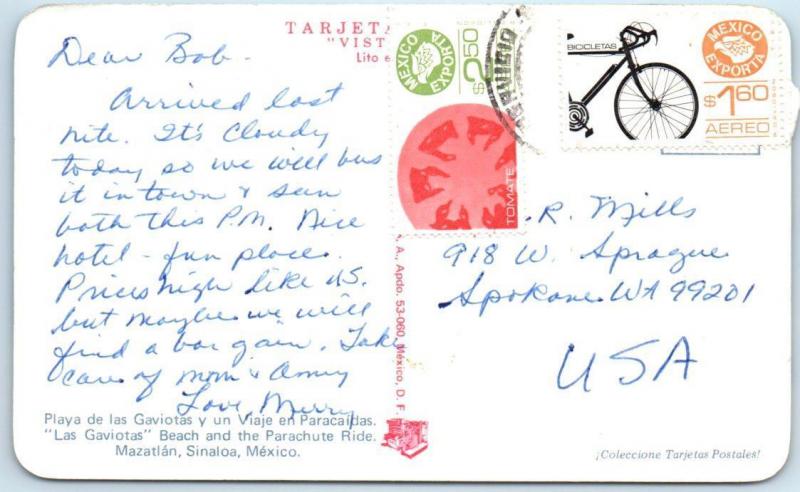 TARJETA
"VIST
Lito e
MEXICO
EXPORTA
$2.50
TOMATE
BICICLETAS
MEXICO
EXPORTA
$1.60
AEREO
Dear Bob -
Arrived last
nite. It's cloudy
today, so we will bus
it in town & sun
bath this P.M. Nice
hotel - fun place.
Prices high like U.S.
but maybe we will
find a bargain. Take
care of mom & Amy
Love, Merry
R. Mills
918 W. Sprague
Spokane WA 99201
USA
A., Apdo. 53-060, México, D. F.
Playa de las Gaviotas y un Viaje en Paracaídas.
"Las Gaviotas" Beach and the Parachute Ride.
Mazatlán, Sinaloa, México.
¡Coleccione Tarjetas Postales!